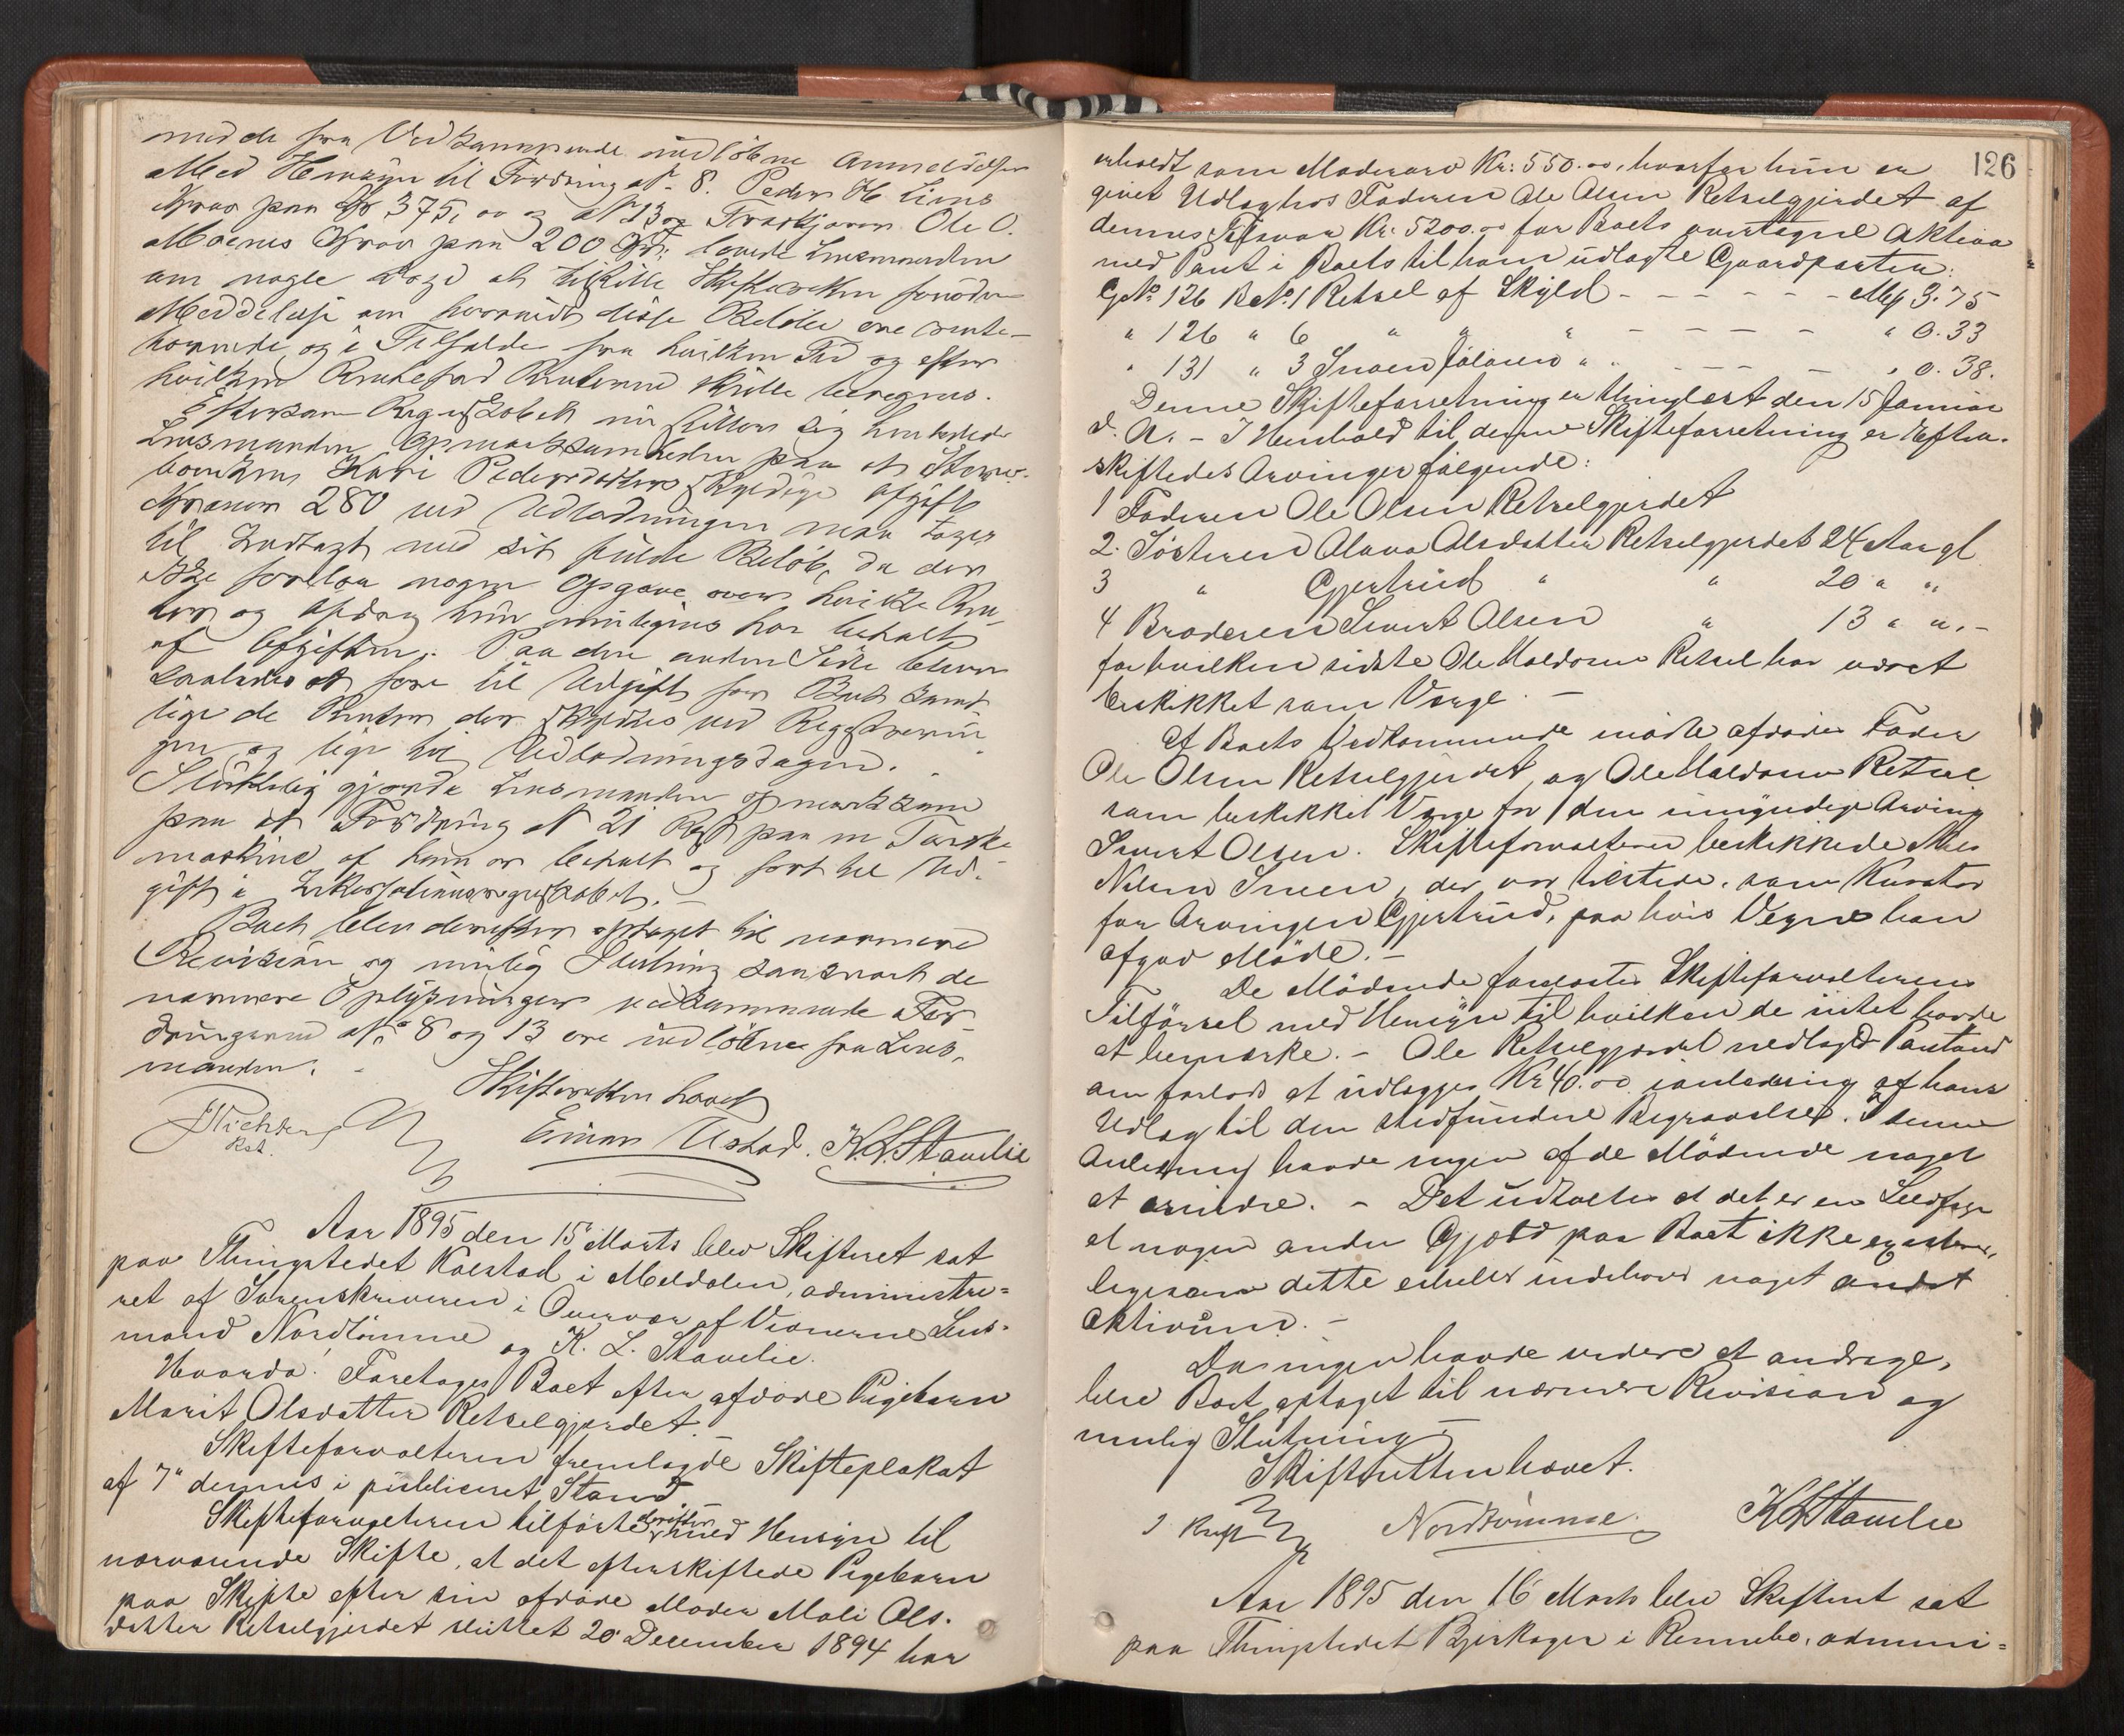 med de fra Vedkommende indløbne Anmeldelser
Med Hensyn til Fordring No 8. Peder H. Liens
Krav paa Kr 375,00 og No 13 og Træskjærer Ole O.
Moenes Krav paa 200 Kr. lovede Lensmanden
om nogle Dage at tilstille Skifteretten fornøden
Meddelelse om hvorvidt disse Beløb ere rente-
bærende, og i Tilfælde fra hvilken Tid og efter
hvilken Rentefod Renterne skulle beregnes.
Eftersom Regnskabet nu stiller sig henledede
Lensmanden Opmærksomheden paa at
Kari Pedersdatters skyldige Afgift
Kroner 280 ved Udlodningen maa tages
til Indtægt med sit fulde Beløb, da der
ikke forelaa nogen Opgave over hvilke Ren-
ter og Afdrag hun muligens har betalt
af Afgiften. Paa den anden Side bliver
saaledes at føre til Udgift for Boet samt-
lige de Renter der skyldes ved Registrerin-
gen og lige til Udlodningsdagen.
Sluttelig gjorde Lensmanden opmærksom
paa at Fordring No 21 Rest paa en Tærske-
maskine af ham er betalt og ført til Ud-
gift i Inkassationsregnskabet. –
Boet blev derefter optaget til nærmere
Revision og mulig Slutning saasnart de
nærmere Oplysninger vedkommende For-
dringerne No 8 og 13 ere indløbne fra Lens-
manden. –
Skifteretten hævet
Richter
Kst.
Einar Ustad. K. L. Stavelie
Aar 1895 den 15 Marts blev Skifteret sat
paa Thingstedet Kalstad i Meldalen, administre-
ret af Sorenskriveren i Overvær af Vidnerne Lens-
mand Nordtømme og K. L. Stavelie.
Hvorda: Foretoges Boet efter afdøde Pigebarn
Marit Olsdatter Retselgjerdet. –
Skifteforvalteren fremlagde Skifteplakat
af 7" dennes i publiceret Stand
Skifteforvalteren tilførte derefter med Hensyn til
nærværende Skifte, at det efterskiftede Pigebarn
paa Skifte efter sin afdøde Moder Mali Ols-
datter Retselgjerdet sluttet 20 December 1894 har
126
erholdt som Modersarv Kr: 550.00, hvorfor hun er
givet Udlæg hos Faderen Ole Olsen Retselgjerdet af
dennes Tilsvar Kr: 5200.00 for Boets overtagne Aktiva
med Pant i Boets til ham udlagte Gaardparter:
GNo. 126 BNo. 1 Retsel af Skyld - - - - - - - Mk 3.75
" 126 " 6 " " " - - - - - " 0.33
" 131 " 3 Snoen " - - - - " 0.38.
Denne Skifteforretning er thinglæst den 15 Januar
d. A. – I Henhold til denne Skifteforretning er Efter-
skiftedes Arvinger følgende:
1 Faderen Ole Olsen Retselgjerdet
2. Søsteren Olava Olsdatter Retselgjerdet 24 Aar gl
3 " Gjertrud " " 20 " "
4 Broderen Sivert Olsen " 13 " ". –
for hvilken sidste Ole Haldorsen Retsel har været
beskikket som Værge. –
Af Boets Vedkommende mødte afdødes Fader
Ole Olsen Retselgjerdet og Ole Haldorsen Retsel
som beskikket Værge for den umyndige Arving
Sivert Olsen. Skifteforvalteren beskikkede
Nilsen Snoen, der var tilstede, som Kurator
for Arvingen Gjertrud, paa hvis Vegne han
afgav Møde. –
De Mødende forelæstes Skifteforvalterens
Tilførsel med Hensyn til hvilken de intet havde
at bemærke. – Ole Retselgjerdet nedlagde Paastand
om forlods at udlægges Kr 40.00 i anledning af hans
Udlæg til den stedfundne Begravelse. I denne
Anledning havde ingen af de Mødende noget
at erindre. – Det udtaltes at det er en Selvfølge
at nogen anden Gjæld paa Boet ikke existerer,
ligesom dette eiheller indehaver noget andet
Aktivum. –
Da ingen havde videre at andrage,
blev Boet optaget til nærmere Revision og
mulig Slutning. –
Skifteretten hævet.
Nordtømme. K L Stavelie
Aar 1895 den 16 Marts blev Skifteret sat
paa Thingstedet Bjerkager i Rennebo, admini-